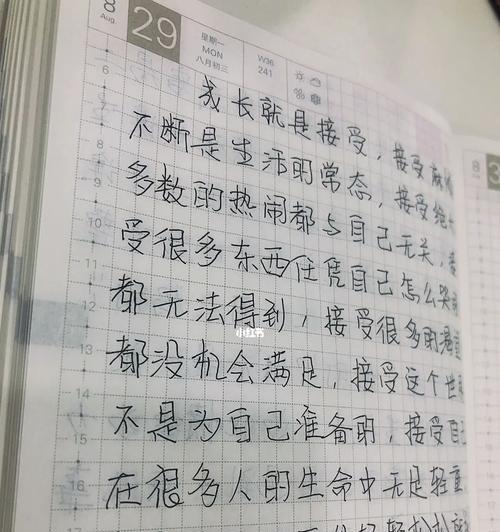 8
Aug.
29
星期一
MON
八月初三
W36
241
8
3
6
成长就是接受，接受麻烦
不断是生活的常态，接受绝大
7
8
多数的热闹都与自己无关，接
9
受很多东西任凭自己怎么哭
10
11
都无法得到，接受很多的
12
小红书
都没机会满足，接受这个世
13
14
不是为自己准备的，接受自己
15
在很多人的生命中无足轻重
16
17